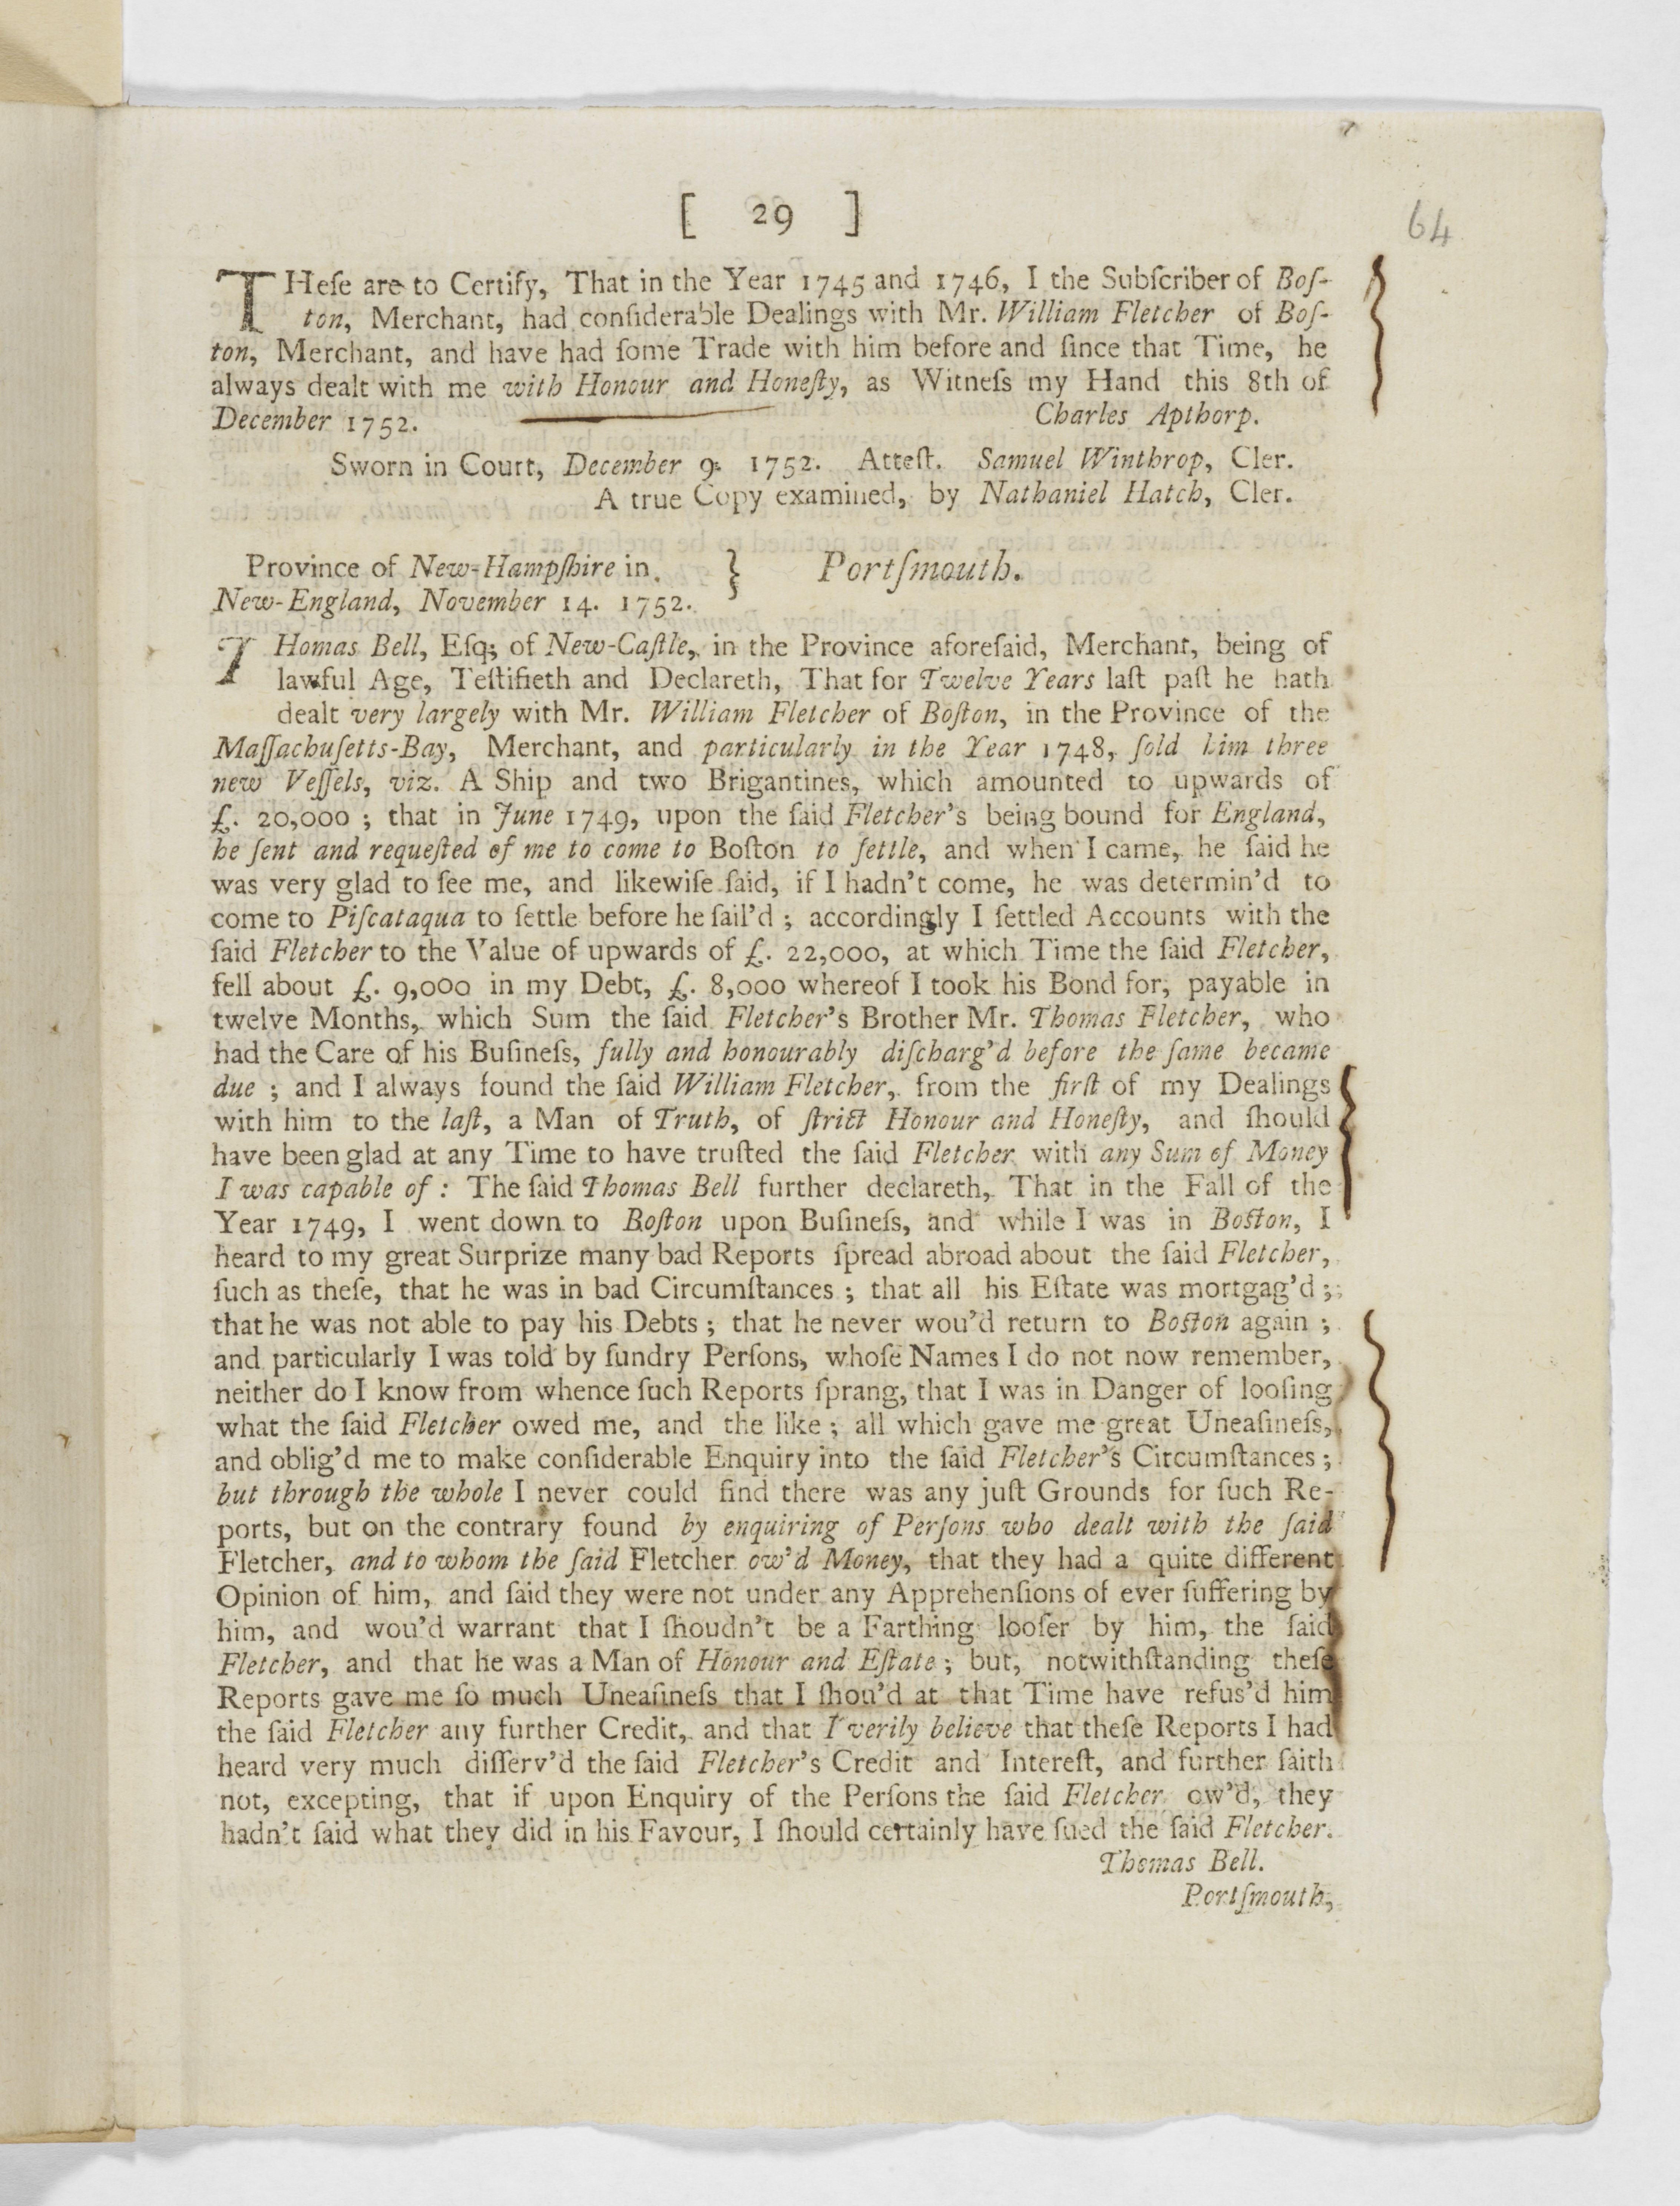 [ 29 ]
64
THeſe are to Certify, That in the Year 1745 and 1746, I the Subſcriber of Boſ-
ton, Merchant, had conſiderable Dealings with Mr. William Fletcher of Boſ-
ton, Merchant, and have had ſome Trade with him before and ſince that Time, he
always dealt with me with Honour and Honeſty, as Witneſs my Hand this 8th of
December 1752. Charles Apthorp.
Sworn in Court, December 9. 1752. Atteſt. Samuel Winthrop, Cler.
A true Copy examined, by Nathaniel Hatch, Cler.
Province of New-Hampſhire in } Portſmouth.
New-England, November 14. 1752.
THomas Bell, Eſq; of New-Caſtle, in the Province aforeſaid, Merchant, being of
lawful Age, Teſtifieth and Declareth, That for Twelve Years laſt paſt he hath
dealt very largely with Mr. William Fletcher of Boſton, in the Province of the
Maſſachuſetts-Bay, Merchant, and particularly in the Year 1748, ſold him three
new Veſſels, viz. A Ship and two Brigantines, which amounted to upwards of
£. 20,000 ; that in June 1749, upon the ſaid Fletcher's being bound for England,
he ſent and requeſted of me to come to Boſton to ſettle, and when I came, he ſaid he
was very glad to ſee me, and likewiſe ſaid, if I hadn't come, he was determin'd to
come to Piſcataqua to ſettle before he ſail'd ; accordingly I ſettled Accounts with the
ſaid Fletcher to the Value of upwards of £. 22,000, at which Time the ſaid Fletcher,
fell about £. 9,000 in my Debt, £. 8,000 whereof I took his Bond for, payable in
twelve Months, which Sum the ſaid Fletcher's Brother Mr. Thomas Fletcher, who
had the Care of his Buſineſs, fully and honourably diſcharg'd before the ſame became
due ; and I always found the ſaid William Fletcher, from the firſt of my Dealings
with him to the laſt, a Man of Truth, of ſtrict Honour and Honeſty, and ſhould
have been glad at any Time to have truſted the ſaid Fletcher with any Sum of Money
I was capable of : The ſaid Thomas Bell further declareth, That in the Fall of the
Year 1749, I went down to Boſton upon Buſineſs, and while I was in Boſton, I
heard to my great Surprize many bad Reports ſpread abroad about the ſaid Fletcher,
ſuch as theſe, that he was in bad Circumſtances ; that all his Eſtate was mortgag'd ;
that he was not able to pay his Debts ; that he never wou'd return to Boſton again ;
and particularly I was told by ſundry Perſons, whoſe Names I do not now remember,
neither do I know from whence ſuch Reports ſprang, that I was in Danger of looſing
what the ſaid Fletcher owed me, and the like ; all which gave me great Uneaſineſs,
and oblig'd me to make conſiderable Enquiry into the ſaid Fletcher's Circumſtances ;
but through the whole I never could find there was any juſt Grounds for ſuch Re-
ports, but on the contrary found by enquiring of Perſons who dealt with the ſaid
Fletcher, and to whom the ſaid Fletcher ow'd Money, that they had a quite different
Opinion of him, and ſaid they were not under any Apprehenſions of ever ſuffering by
him, and wou'd warrant that I ſhoudn't be a Farthing looſer by him, the ſaid
Fletcher, and that he was a Man of Honour and Eſtate ; but, notwithſtanding theſe
Reports gave me ſo much Uneaſineſs that I ſhou'd at that Time have refus'd him
the ſaid Fletcher any further Credit, and that I verily believe that theſe Reports I had
heard very much diſſerv'd the ſaid Fletcher's Credit and Intereſt, and further ſaith
not, excepting, that if upon Enquiry of the Perſons the ſaid Fletcher ow'd, they
hadn't ſaid what they did in his Favour, I ſhould certainly have ſued the ſaid Fletcher.
Thomas Bell.
Portſmouth,